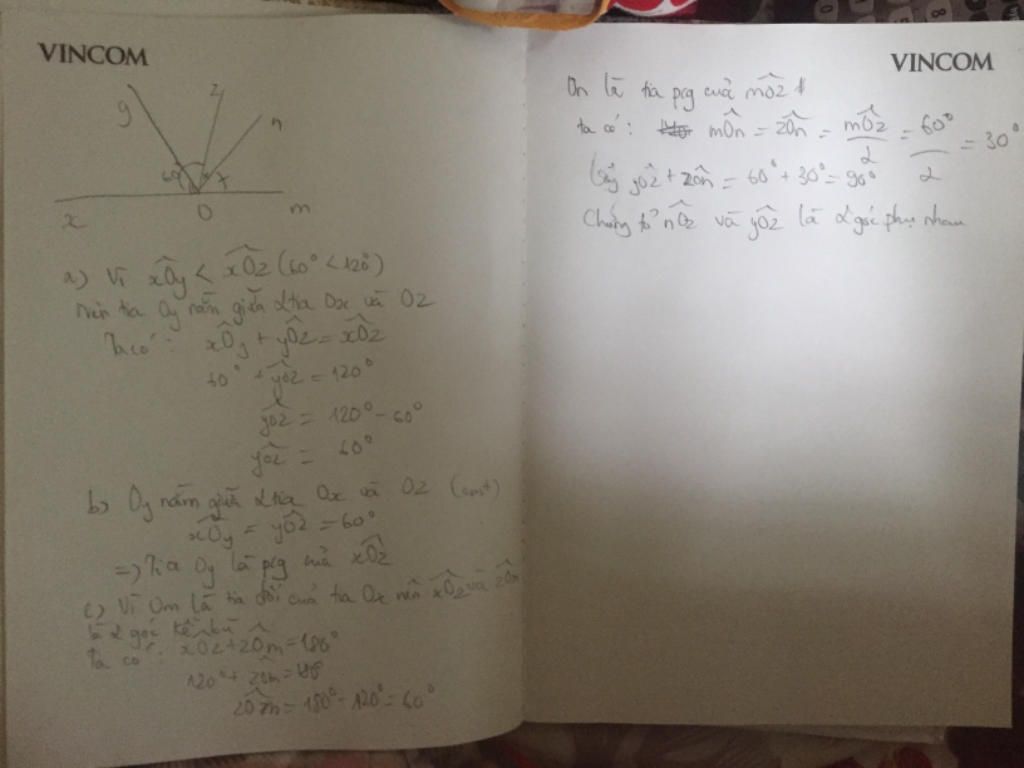 VINCOM
y z n
60
x O m
a) Vì xÔy < xÔz (60° < 120°)
nên tia Oy nằm giữa 2 tia Ox và Oz
Ta có: xÔy + yÔz = xÔz
60° + yÔz = 120°
yÔz = 120° - 60°
yÔz = 60°
b) Oy nằm giữa 2 tia Ox và Oz (cmt)
xÔy = yÔz = 60°
=> Tia Oy là pg của xÔz
c) Vì Om là tia đối của tia Ox nên xÔz và zÔm
là 2 góc kề bù
Ta có: xÔz + zÔm = 180°
120° + zÔm = 180
zÔm = 180° - 120° = 60°
VINCOM
On là tia pg của mÔz
ta có: mÔn = zÔn = mÔz/2 = 60°/2 = 30°
yÔz + zÔn = 60° + 30° = 90°
Chứng tỏ nÔz và yÔz là 2 góc phụ nhau